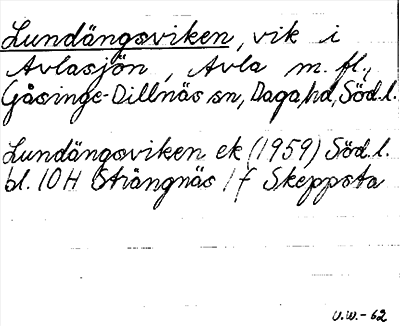 Lundängsviken, vik i
Avlasjön, Avla m. fl.,
Gåsinge-Dillnäs sn, Daga hd, Söd. l.
Lundängsviken ek (1959) Söd. l.
bl. 10 H Strängnäs / f Skeppsta
U.W.-62